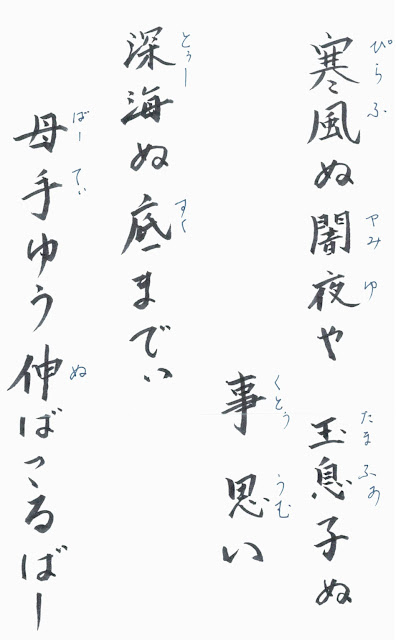 ぴらふ やみ ゆ たま ふあ
寒風ぬ闇夜や 玉息子ぬ
くとぅ うむ
事思い
とぅー すく
深海ぬ底までぃ
ばー てぃ ぬ
母手ゆう伸ばこるばー